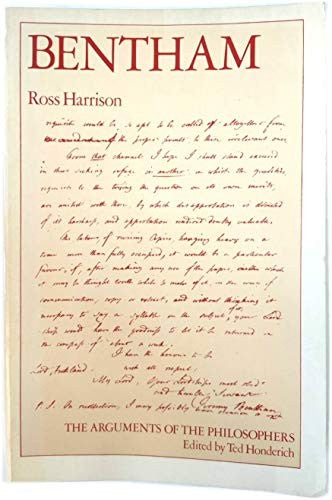 BENTHAM
Ross Harrison
requisite would be, so apt to be called off altogether from
the proper points to these irrelevant ones.
From that channel I hope I shall stand excused
in thus seeking refuge in another: in which the qualities
requisite to the trying the question on its own merits,
are united with those, by which disapprobation is divested
of its harshness, and approbation rendered doubly valuable.
The labour of revising Copies hanging heavy on a
time more than fully occupied, it would be a particular
favour, if, after making any use of the paper, such as
it may be thought worth while to make of it, in the way of
communication, copy or extract, and without thinking it
necessary to say a syllable on the subject, your Lord
ship would have the goodness to let it be returned in
the compass of about a week.
I have the honour to be
with all respect,
Lord Auckland.
My Lord, Your Lordship's most obed
and humble Servant
P.S. On recollection, I may possibly
Jeremy Bentham
THE ARGUMENTS OF THE PHILOSOPHERS
Edited by Ted Honderich